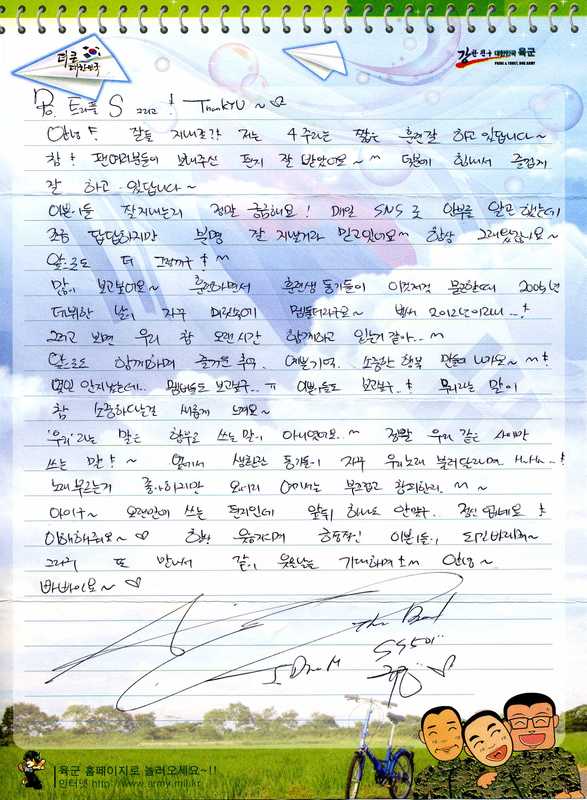 더 큰 대한민국
강한 친구 대한민국 육군
PRIDE & TRUST, ROK ARMY
트리플 S 그리고 ThanKYU ~ ♡
안녕! 잘들 지내죠? 저는 4주라는 짧은 훈련 잘 하고 있답니다~
참! 팬여러분들이 보내주신 편지 잘 받았어요~ ^^ 덕분에 힘내서 즐겁게
잘 하고 있답니다~
이쁜이들 잘 지내는지 정말 궁금해요! 매일 SNS로 안부를 알곤 했는데
조금 답답하지만 분명 잘 지낼거라 믿고있어요 ^^ 항상 그래왔잖아요~
앞으로도 더 그럴꺼구 ! ^^
많이 보고싶어요~ 훈련하면서 훈련생 동기들이 이것저것 물르는데 2005년
데뷔한 날이 자꾸 머릿속에 맴돌더라구요~ 벌써 2012년이라니..!
그러고 보면 우리 참 오랜시간 함께하고 있는거 같아.. ^^
앞으로도 함께하며 즐거운 추억, 예쁜기억, 소중한 행복 만들어 나가요~ ^^!
몇일 안지났는데.. 멤버들도 보고싶구.. ㅠ 이쁜이들도 보고싶구..! 우리라는 말이
참 소중하다는걸 새롭게 느껴요~
'우리'라는 말은 함부로 쓰는 말이 아니였어요.. ^^ 정말 우리 같은 사이만
쓰는 말! ~ 옆에서 생활관 동기들이 자꾸 우리노래 불러달라며.. HaHa~!
노래 부르는거 좋아하지만 오히려 여기서는 부끄럽고 창피한걸.. ^^ ~
아이구~ 오랜만에 쓰는 편지인데 앞뒤 하나도 안맞구.. 정신 없네요!
이해해줘요~ ♡ 항상 웃음가득 행복한 이쁜이들이 되길바라며~
그리고 또 만나서 같이 웃을날을 기대하며! ^^ 안녕~
빠빠이요~ ♡
The Band
SS501
육군 홈페이지로 놀러오세요~!!
인터넷 http://www.army.mil.kr